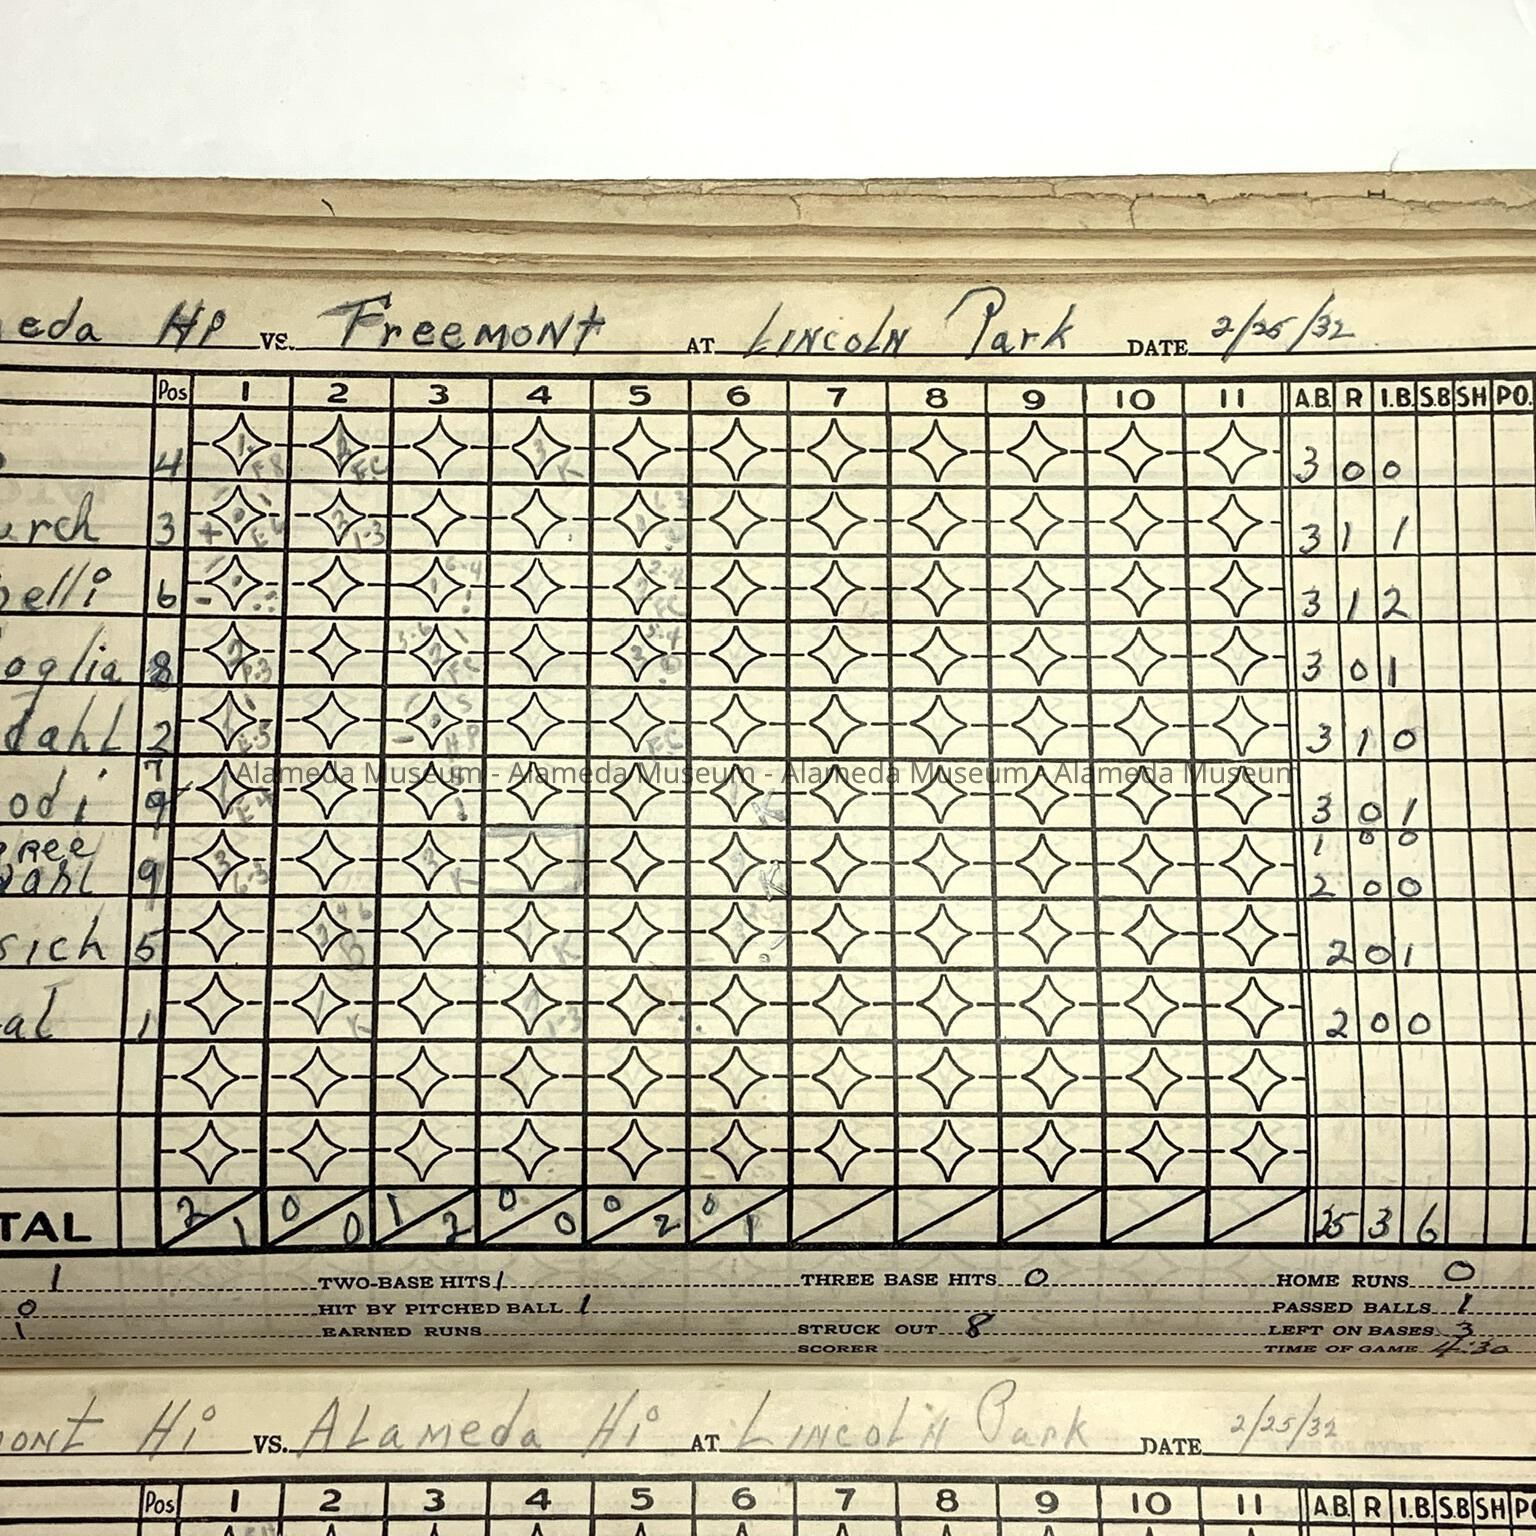 eda HP VS. Freemont AT Lincoln Park DATE 2/25/32
Pos 1 2 3 4 5 6 7 8 9 10 11 A.B. R I.B. S.B SH PO.
4 1 F8 FC 3 K 3 0 0
urch 3 E6 2 1-3 6-3 3 1 1
elli 6 6-4 2-4 FC 3 1 2
oglia 8 2 P-3 5-6 2 FC 5-4 3 3 0 1
dahl 2 E-5 HP FC 3 1 0
7
odi 9 E4 K 3 0 1
ree 1 0 0
arl 9 3 6-3 3 K K 2 0 0
sich 5 2 4 6 K 2 0 1
al 1 1 K 2 1-3 2 0 0
TAL 2/1 0/0 1/2 0/0 0/2 0/1 25 3 6
1 TWO-BASE HITS 1 THREE BASE HITS 0 HOME RUNS 0
0 HIT BY PITCHED BALL 1 PASSED BALLS 1
1 EARNED RUNS STRUCK OUT 8 LEFT ON BASES 3
SCORER TIME OF GAME 4:30
ont Hi VS. Alameda Hi AT Lincoln Park DATE 2/25/32
Pos 1 2 3 4 5 6 7 8 9 10 11 A.B. R I.B. S.B SH PO
Alameda Museum - Alameda Museum - Alameda Museum - Alameda Museum